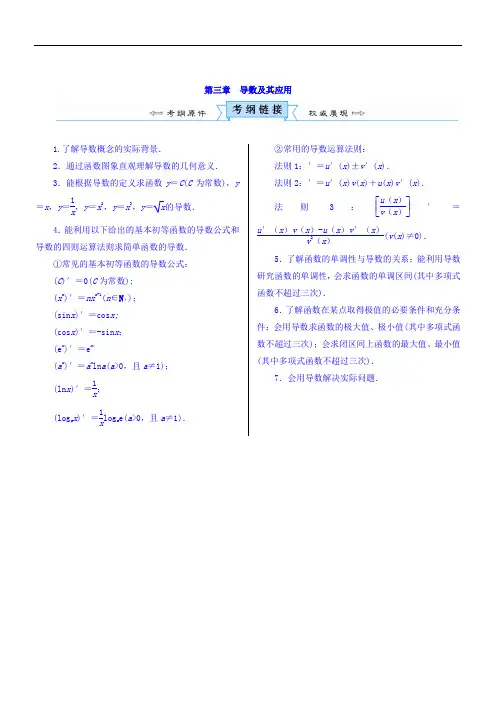 第三章 导数及其应用
考纲原件 考纲链接 权威展现
1.了解导数概念的实际背景.
2.通过函数图象直观理解导数的几何意义.
3.能根据导数的定义求函数 y=C(C 为常数),y
=x,y=1/x,y=x²,y=x³,y=√x的导数.
4.能利用以下给出的基本初等函数的导数公式和
导数的四则运算法则求简单函数的导数.
①常见的基本初等函数的导数公式:
(C)′=0(C 为常数);
(xⁿ)′=nxⁿ⁻¹(n∈N₊);
(sinx)′=cosx;
(cosx)′=-sinx;
(eˣ)′=eˣ;
(aˣ)′=aˣlna(a>0,且 a≠1);
(lnx)′=1/x;
(logₐx)′=1/x logₐe(a>0,且 a≠1).
②常用的导数运算法则:
法则 1:′=u′(x)±v′(x).
法则 2:′=u′(x)v(x)+u(x)v′(x).
法则 3:[u(x)/v(x)]′=
u′(x)v(x)-u(x)v′(x)/v²(x)(v(x)≠0).
5.了解函数的单调性与导数的关系;能利用导数
研究函数的单调性,会求函数的单调区间(其中多项式
函数不超过三次).
6.了解函数在某点取得极值的必要条件和充分条
件;会用导数求函数的极大值、极小值(其中多项式函
数不超过三次);会求闭区间上函数的最大值、最小值
(其中多项式函数不超过三次).
7.会用导数解决实际问题.